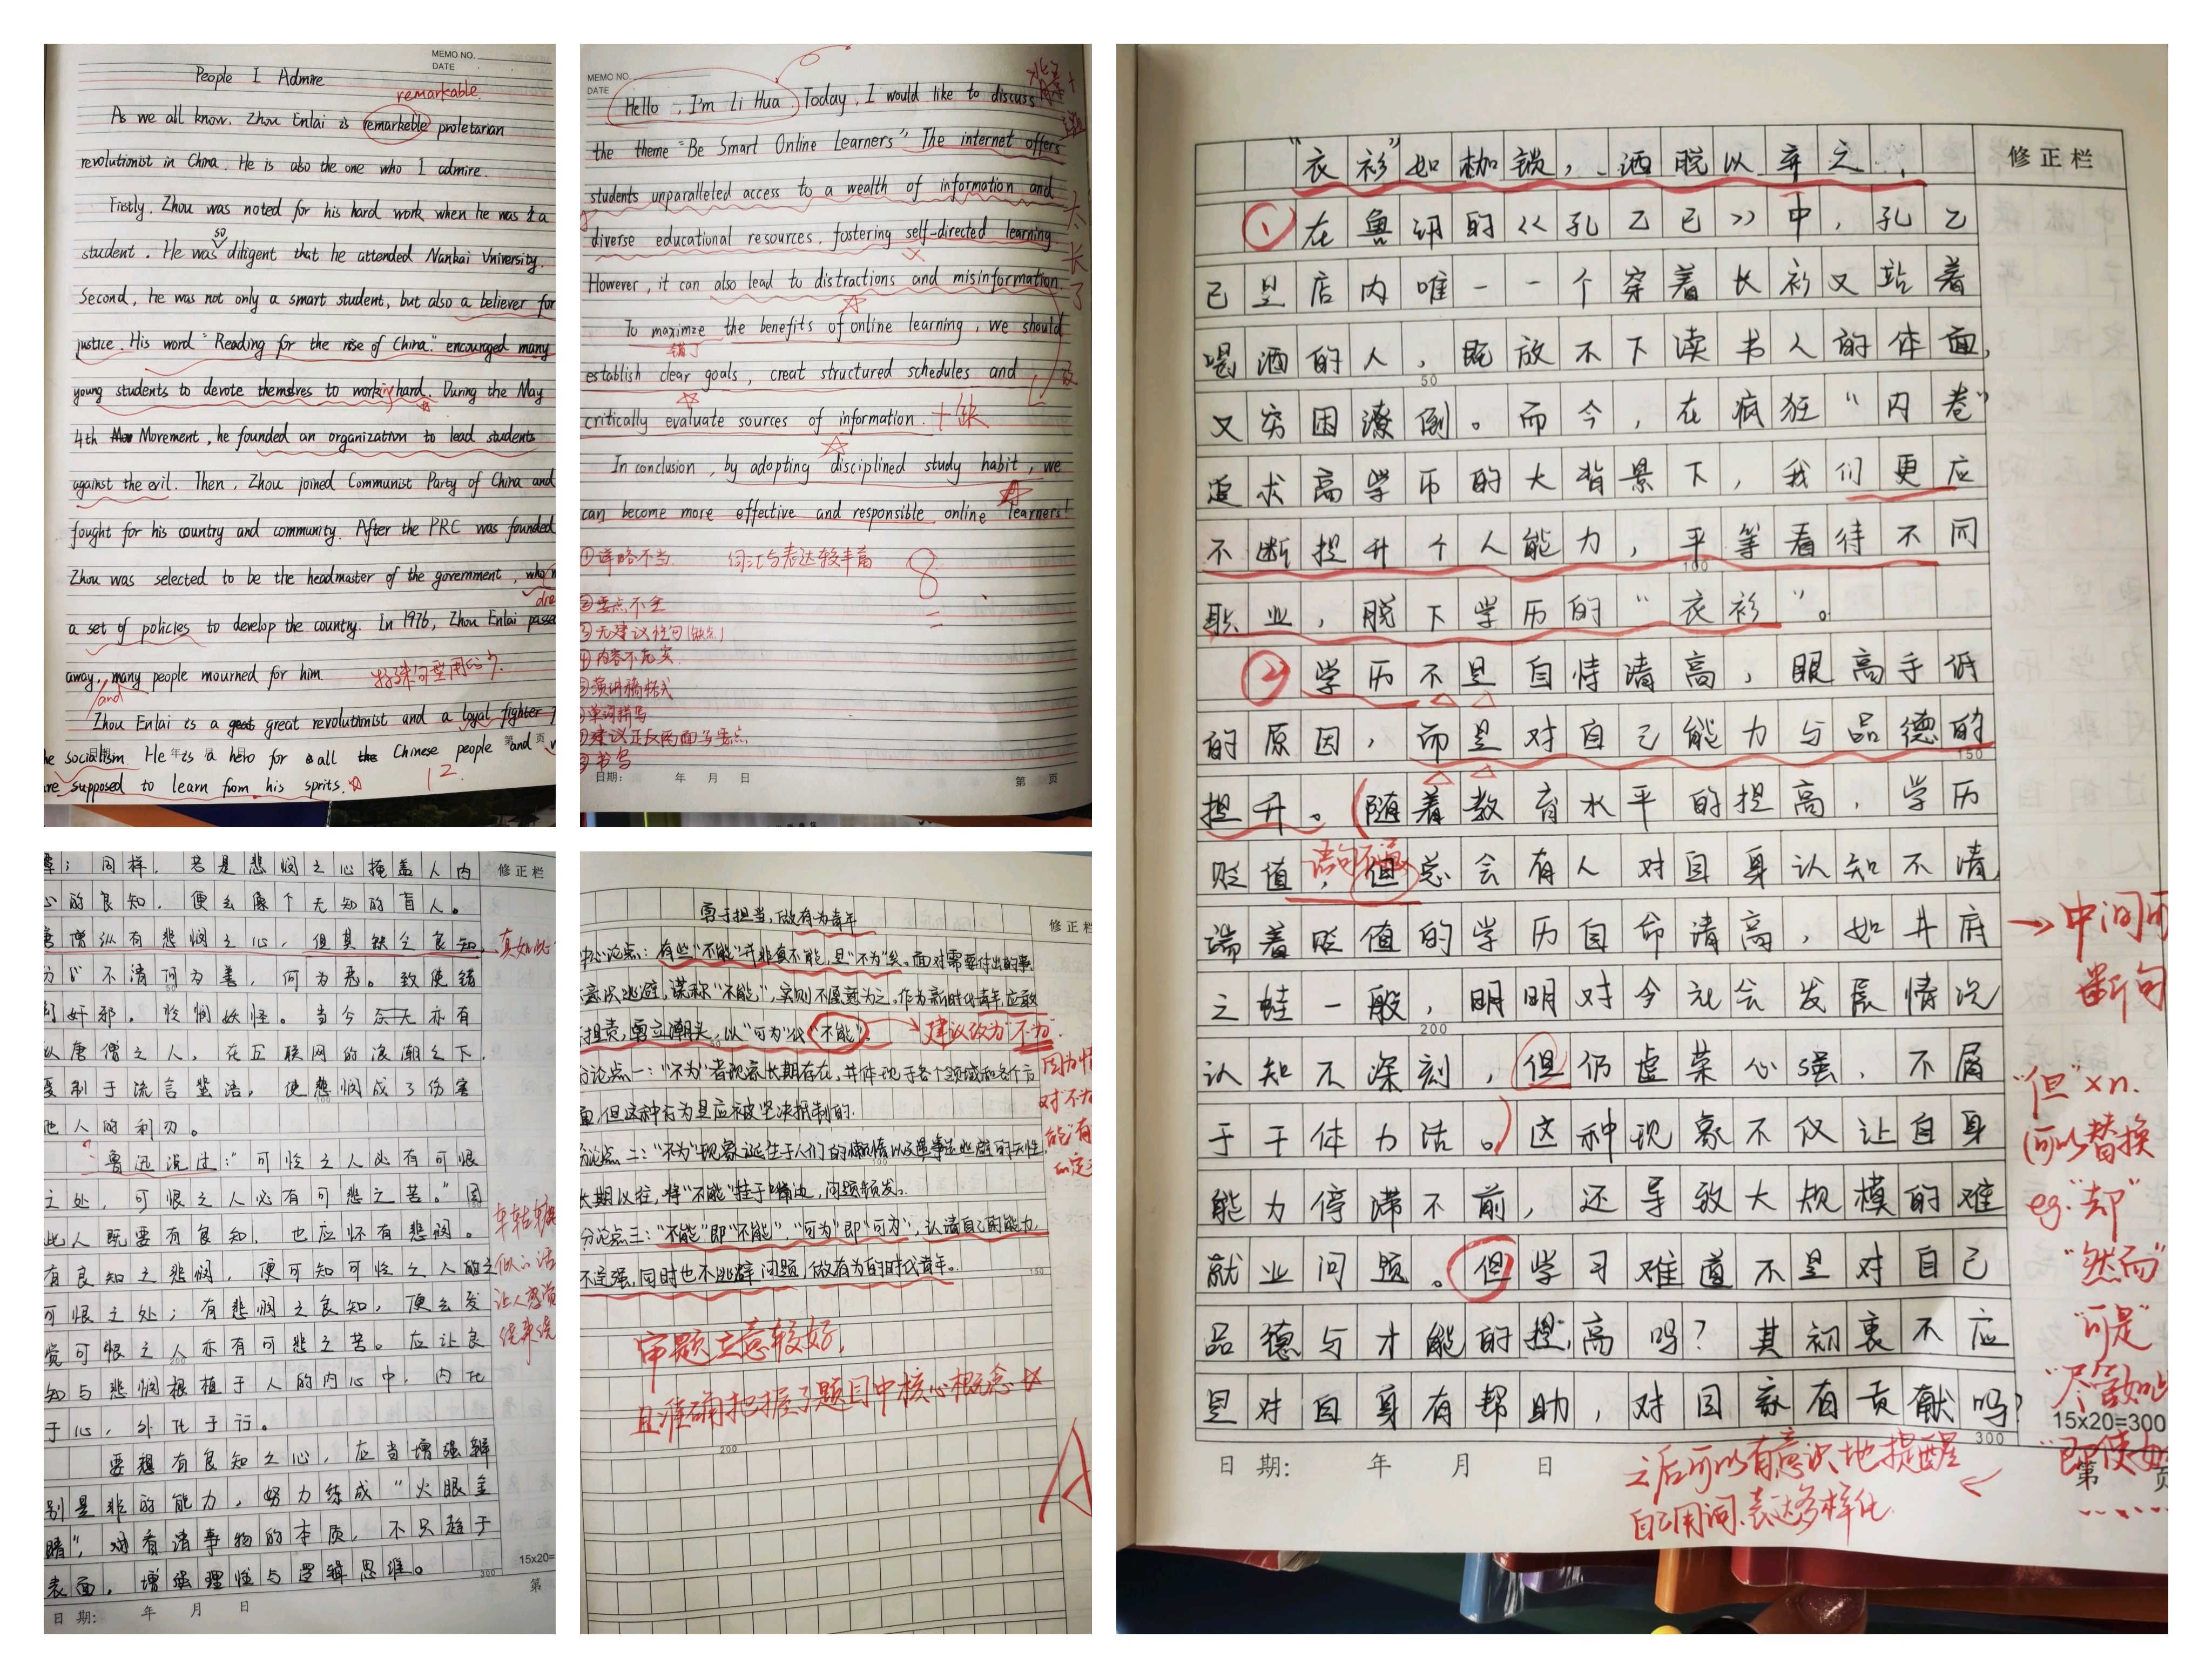 MEMO NO.
DATE
People I Admire
remarkable
As we all know, Zhou Enlai is remarkeble proletarian
revolutionist in China. He is also the one who I admire.
Firstly, Zhou was noted for his hard work when he was a
so
student. He was diligent that he attended Nankai University.
Second, he was not only a smart student, but also a believer for
justice. His word "Reading for the rise of China." encouraged many
young students to devote themselves to working hard. During the May
4th Movement, he founded an organization to lead students
against the evil. Then, Zhou joined Communist Party of China and
fought for his country and community. After the PRC was founded
Zhou was selected to be the headmaster of the government, who
a set of policies to develop the country. In 1976, Zhou Enlai passe
away, many people mourned for him
and
特殊句型用的少.
Zhou Enlai is a great great revolutionist and a loyal fighter
he socialism. He is a hero for all the Chinese people and
re supposed to learn from his sprits.
12.
MEMO NO.
DATE
Hello, I'm Li Hua Today, I would like to discuss
the theme "Be Smart Online Learners" The internet offers
students unparalleled access to a wealth of information and
diverse educational resources, fostering self-directed learning.
However, it can also lead to distractions and misinformation.
太长了
To maximze the benefits of online learning, we should
错了
establish clear goals, creat structured schedules and
critically evaluate sources of information.
In conclusion, by adopting disciplined study habit, we
can become more effective and responsible online learners!
①详略不当 词汇与表达较丰富 8
②要点不全
③无建议性句(缺点)
④内容不充实
⑤演讲稿格式
⑥单词拼写
⑦建议正反两面写要点
⑧书写
日期: 年 月 日 第 页
"衣衫"如枷锁,洒脱以弃之
修正栏
①在鲁迅的《孔乙己》中,孔乙
己是店内唯一一个穿着长衫又站着
喝酒的人,既放不下读书人的体面,
又穷困潦倒。而今,在疯狂"内卷"
追求高学历的大背景下,我们更应
不断提升个人能力,平等看待不同
职业,脱下学历的"衣衫"。
②学历不是自恃清高,眼高手低
的原因,而是对自己能力与品德的
提升。(随着教育水平的提高,学历
贬值,但总会有人对自身认知不清,
端着贬值的学历自命清高,如井底
之蛙一般,明明对今社会发展情况
认知不深刻,但仍虚荣心强,不屑
于干体力活。)这种现象不仅让自身
能力停滞不前,还导致大规模的难
就业问题。但学习难道不是对自己
品德与才能的提高吗?其初衷不应
是对自身有帮助,对国家有贡献吗?
→中间可
断句
"但"×n.
(可以替换
eg."却"
"然而"
"可是"
"尽管如此
15x20=300
"即使如
300
日期: 年 月 日
第 页
之后可以有意识地提醒
自己用词、表达多样化
同样,若是悲悯之心掩盖人内
修正栏
心的良知,便会像个无知的盲人。
唐僧纵有悲悯之心,但其缺乏良知,
真如此
分不清何为善,何为恶。致使错
奸邪,怜悯妖怪。当今 亦有
似唐僧之人,在互联网的浪潮之下,
受制于流言蜚语,使悲悯成了伤害
他人的利刃。
鲁迅说过:"可怜之人必有可恨
之处,可恨之人必有可悲之苦。"因
此人既要有良知,也应怀有悲悯。
有良知之悲悯,便可知可怜之人的
可恨之处;有悲悯之良知,便会发
觉可恨之人亦有可悲之苦。应让良
知与悲悯根植于人的内心中,内化
于心,外化于行。
车轱辘
似的话
让人感觉
绕来绕
要想有良知之心,应当增强辨
别是非的能力,努力练成"火眼金
睛",看清事物的本质,不只趋于
表面,增强理性与逻辑思维。
15x20=
300
日期: 年 月 日
第
勇于担当,做有为青年
修正栏
中心论点:有些"不能"并非真不能,是"不为"矣。面对需要付出的事,
意识逃避,谎称"不能",实则不愿意为之。作为新时代青年应敢
担责,勇立潮头,以"可为"代"不能"。
→建议改为"不为".
分论点一:"不为"者现象长期存在,并体现于各个领域和各个方
面,但这种行为是应被坚决抵制的.
分论点二:"不为"现象诞生于人们的懒惰以及遇事逃避的天性.
长期以往,将"不能"挂于嘴边,问题频发.
分论点三:"不能"即"不能","可为"即"可为",认清自己的能力,
不逞强,同时也不逃避问题,做有为的时代青年。
审题立意较好,
且准确把握了题目中核心概念
200
A